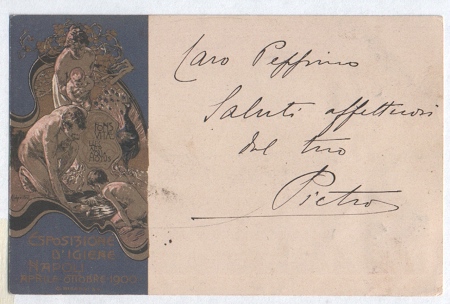 Caro Peppino
Saluti affettuosi
dal tuo
Pietro
ESPOSIZIONE
D'IGIENE
NAPOLI
APRILE-OTTOBRE-1900